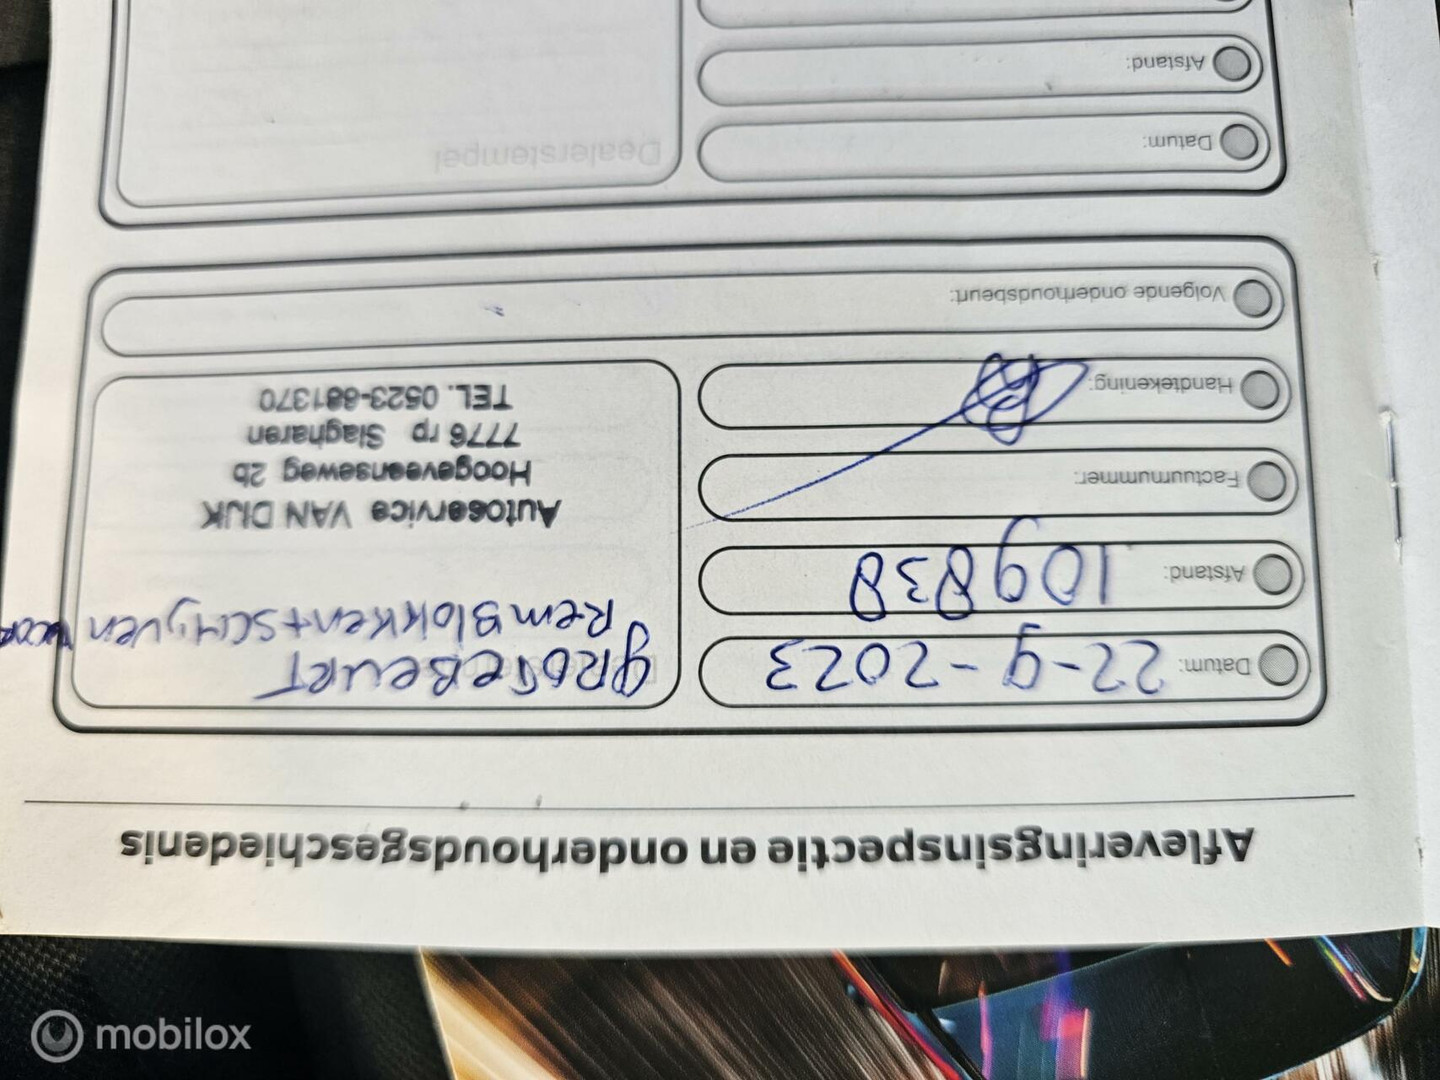 Afleveringsinspectie en onderhoudsgeschiedenis
Datum: 22-9-2023
Afstand: 109838
Factuurnummer:
Handtekening:
Volgende onderhoudsbeurt:
groteBeurt
RemBlokken+schijven
Autoservice VAN DIJK
Hoogeveenseweg 2b
7776 rp Slagharen
TEL. 0523-881370
Datum:
Afstand:
Dealerstempel
mobilox